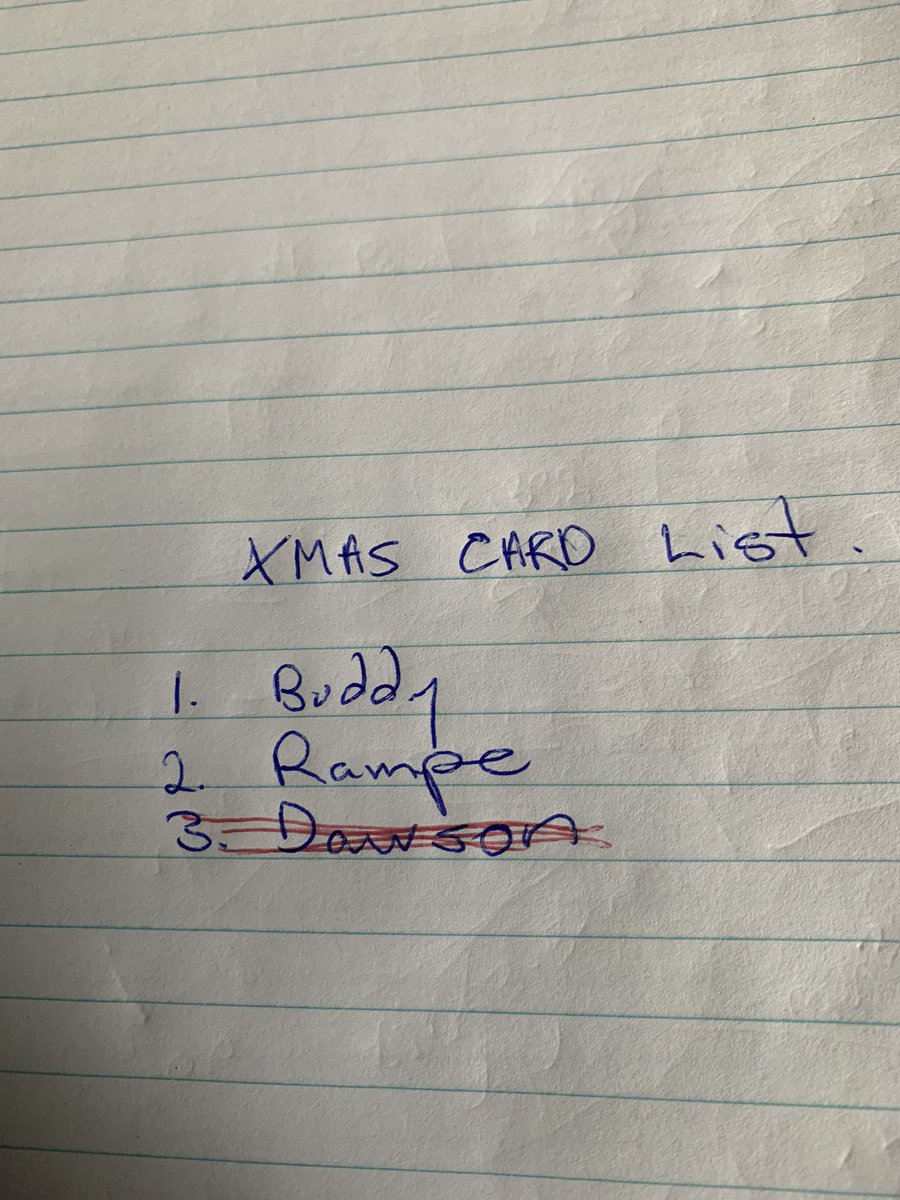 XMAS CARD List.
1. Buddy
2. Rampe
3. Dawson